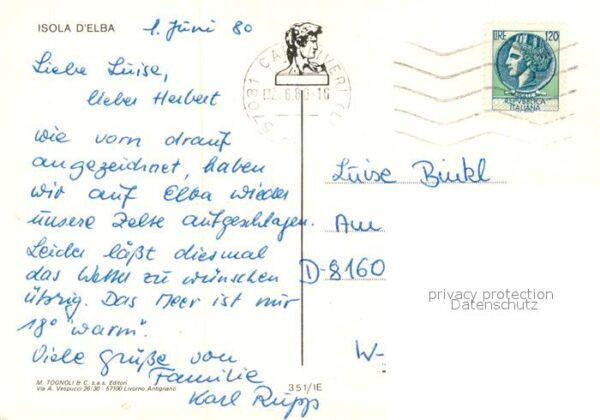 ISOLA D'ELBA
1. Juni 80
Liebe Luise,
lieber Herbert
wie vorn drauf
angezeichnet, haben
wir auf Elba wieder
unsere Zelte aufgeschlagen.
Leider läßt diesmal
das Wetter zu wünschen
übrig. Das Meer ist nur
18° "warm".
Viele Grüße von
Familie
Karl Rupp
M. TOGNOLI & C. s.a.s. Editori
Via A. Vespucci 26/30 - 57100 Livorno Antignano
351/IE
57031
02.6.80-16
LIRE 120
REPVBBLICA
ITALIANA
Luise Binkl
Am
D-8160
W-
privacy protection
Datenschutz